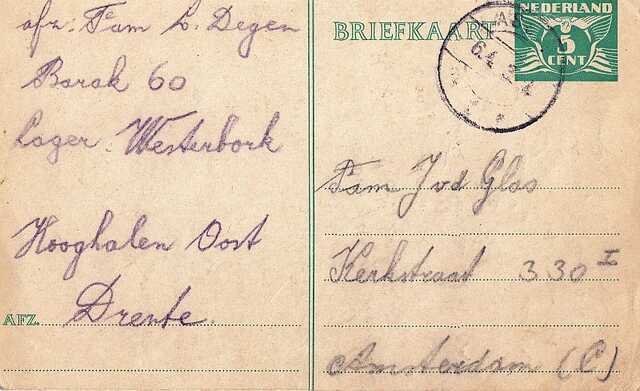 afz: Fam L. Degen
Barak 60
Lager Westerbork
Hooghalen Oost
AFZ. Drente
BRIEFKAART
NEDERLAND
5
CENT
6.4
Fam J vd Glas
Kerkstraat 330 I
Amsterdam (C)